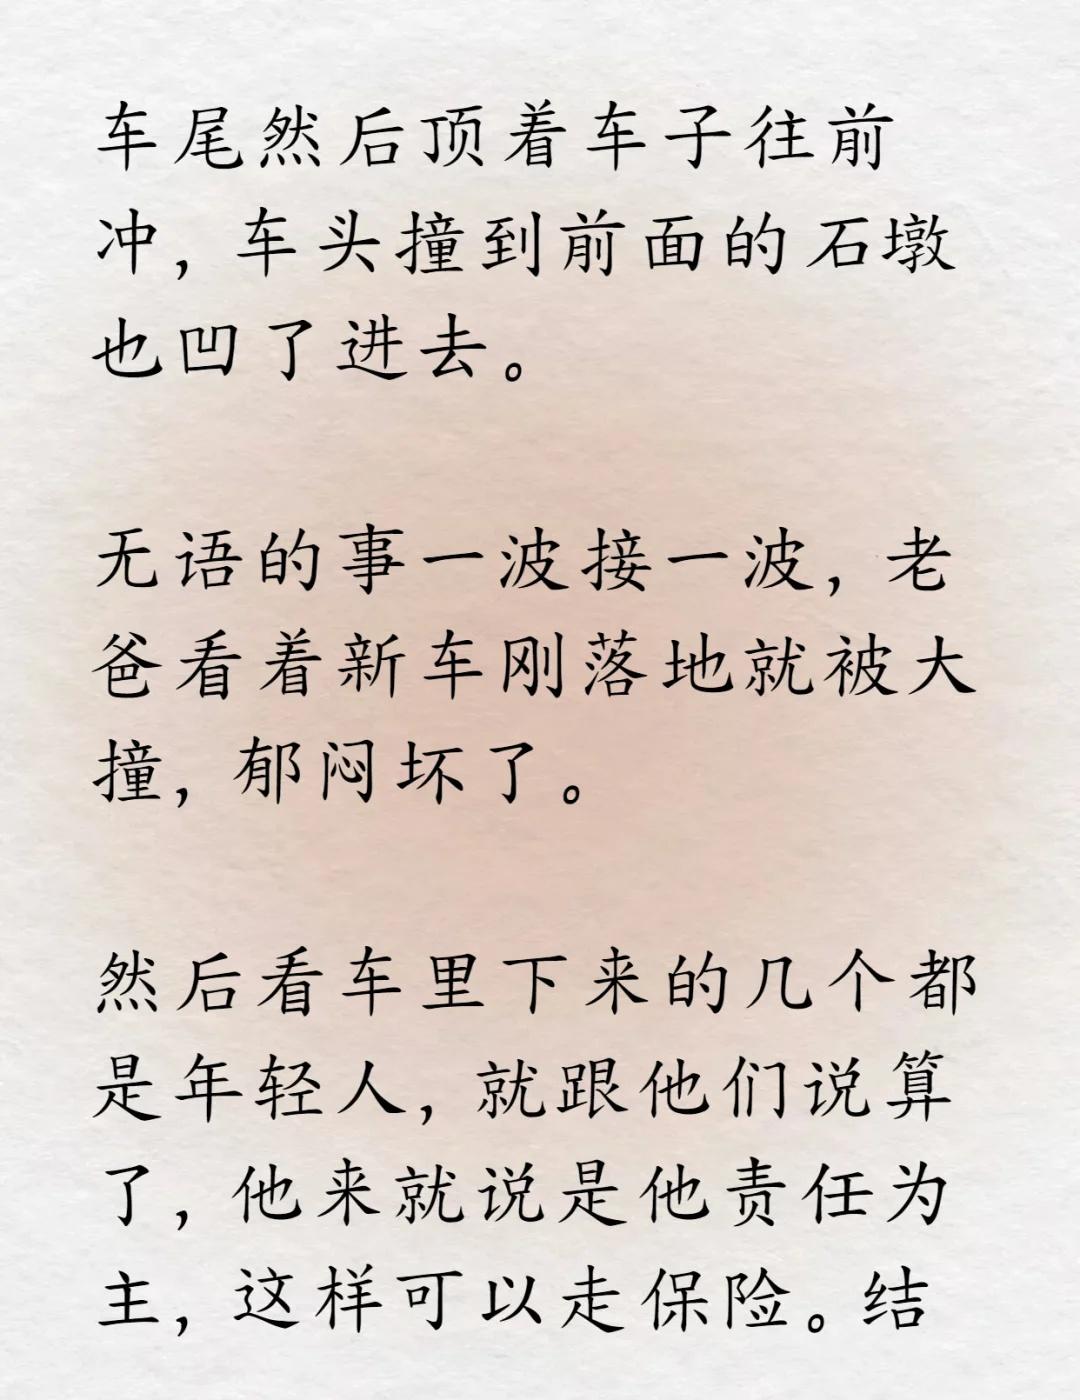 车尾然后顶着车子往前
冲，车头撞到前面的石墩
也凹了进去。
无语的事一波接一波，老
爸看着新车刚落地就被大
撞，郁闷坏了。
然后看车里下来的几个都
是年轻人，就跟他们说算
了，他来就说是他责任为
主，这样可以走保险。结